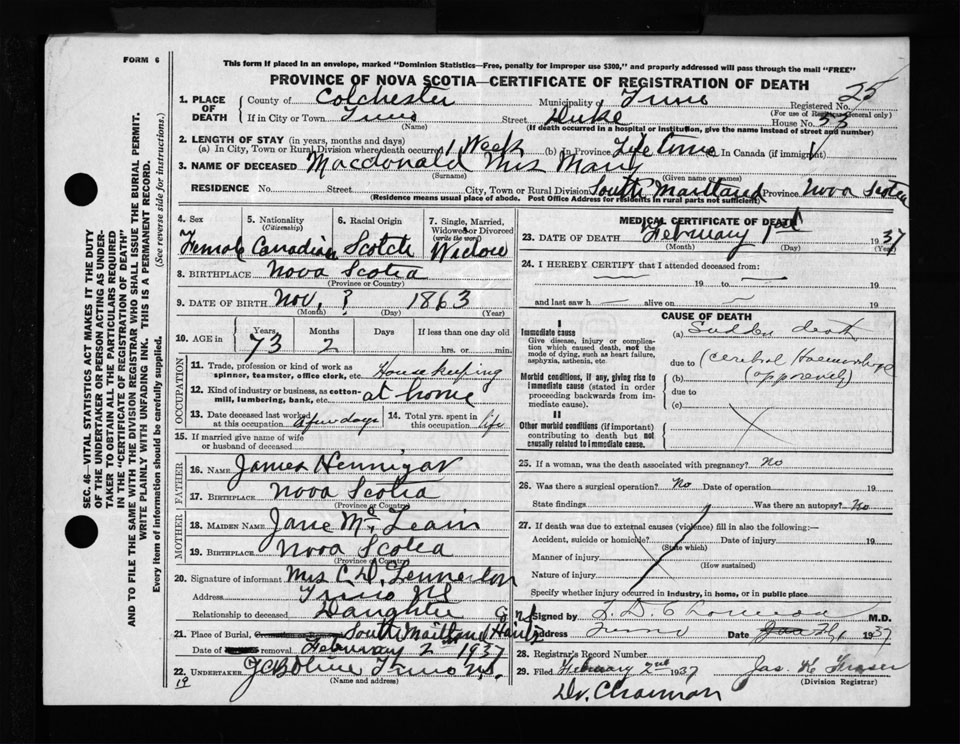 FORM 6
This form if placed in an envelope, marked "Dominion Statistics—Free, penalty for improper use $300," and properly addressed will pass through the mail "FREE"
PROVINCE OF NOVA SCOTIA—CERTIFICATE OF REGISTRATION OF DEATH
25
1. PLACE OF DEATH
County of Colchester Municipality of Truro Registered No.
(For use of Registrar General only)
If in City or Town Truro Street Duke House No. 33
(Name) (If death occurred in a hospital or institution, give the name instead of street and number)
2. LENGTH OF STAY (in years, months and days)
(a) In City, Town or Rural Division where death occurred 1 Week (b) in Province Lifetime In Canada (if immigrant)
3. NAME OF DECEASED Macdonald Mrs Mary
(Surname) (Given name or names)
RESIDENCE No. Street City, Town or Rural Division South Maitland Province Nova Scotia
(Residence means usual place of abode. Post Office Address for residents in rural parts not sufficient)
4. Sex Female
5. Nationality (Citizenship) Canadian
6. Racial Origin Scotch
7. Single, Married, Widowed or Divorced (write the word) Widow
8. BIRTHPLACE Nova Scotia
(Province or Country)
9. DATE OF BIRTH Nov. ? 1863
(Month) (Day) (Year)
10. AGE in Years Months Days If less than one day old
73 2 hrs. or min.
OCCUPATION
11. Trade, profession or kind of work as spinner, teamster, office clerk, etc. Housekeeping
12. Kind of industry or business, as cotton-mill, lumbering, bank, etc. at home
13. Date deceased last worked at this occupation a few days
14. Total yrs. spent in this occupation life
15. If married give name of wife or husband of deceased
FATHER
16. NAME James Hennigar
17. BIRTHPLACE Nova Scotia
(Province or Country)
MOTHER
18. MAIDEN NAME Jane
19. BIRTHPLACE Nova Scotia
(Province or Country)
20. Signature of informant Mrs C. D.
Address Truro NS
Relationship to deceased Daughter
21. Place of Burial, Cremation or Removal South Maitland Hants
Date of removal February 2 1937
22. UNDERTAKER Truro N.S.
(Name and address)
19
MEDICAL CERTIFICATE OF DEATH
23. DATE OF DEATH February 1st 1937
(Month) (Day) (Year)
24. I HEREBY CERTIFY that I attended deceased from:
19 to 19
and last saw h alive on 19
CAUSE OF DEATH
I
Immediate cause
Give disease, injury or complication which caused death, not the mode of dying, such as heart failure, asphyxia, asthenia, etc.
(a) Sudden death
due to (Cerebral Haemorrhage
Morbid conditions, if any, giving rise to immediate cause (stated in order proceeding backwards from immediate cause).
(b)
due to
(c)
II
Other morbid conditions (if important) contributing to death but not causally related to immediate cause.
25. If a woman, was the death associated with pregnancy? No
26. Was there a surgical operation? No Date of operation 19
State findings Was there an autopsy? No
27. If death was due to external causes (violence) fill in also the following:—
Accident, suicide or homicide? Date of injury 19
(State which)
Manner of injury
(How sustained)
Nature of injury
Specify whether injury occurred in Industry, in home, or in public place
Signed by M.D.
Address Truro Date 1937
28. Registrar's Record Number
29. Filed February 2nd 1937 Jas. H. Fraser
(Division Registrar)
Dr. Charman
SEC. 46—VITAL STATISTICS ACT MAKES IT THE DUTY
OF THE UNDERTAKER OR PERSON ACTING AS UNDERTAKER TO OBTAIN ALL THE PARTICULARS REQUIRED
IN THE "CERTIFICATE OF REGISTRATION OF DEATH"
AND TO FILE THE SAME WITH THE DIVISION REGISTRAR WHO SHALL ISSUE THE BURIAL PERMIT.
WRITE PLAINLY WITH UNFADING INK. THIS IS A PERMANENT RECORD.
Every item of information should be carefully supplied. (See reverse side for instructions.)